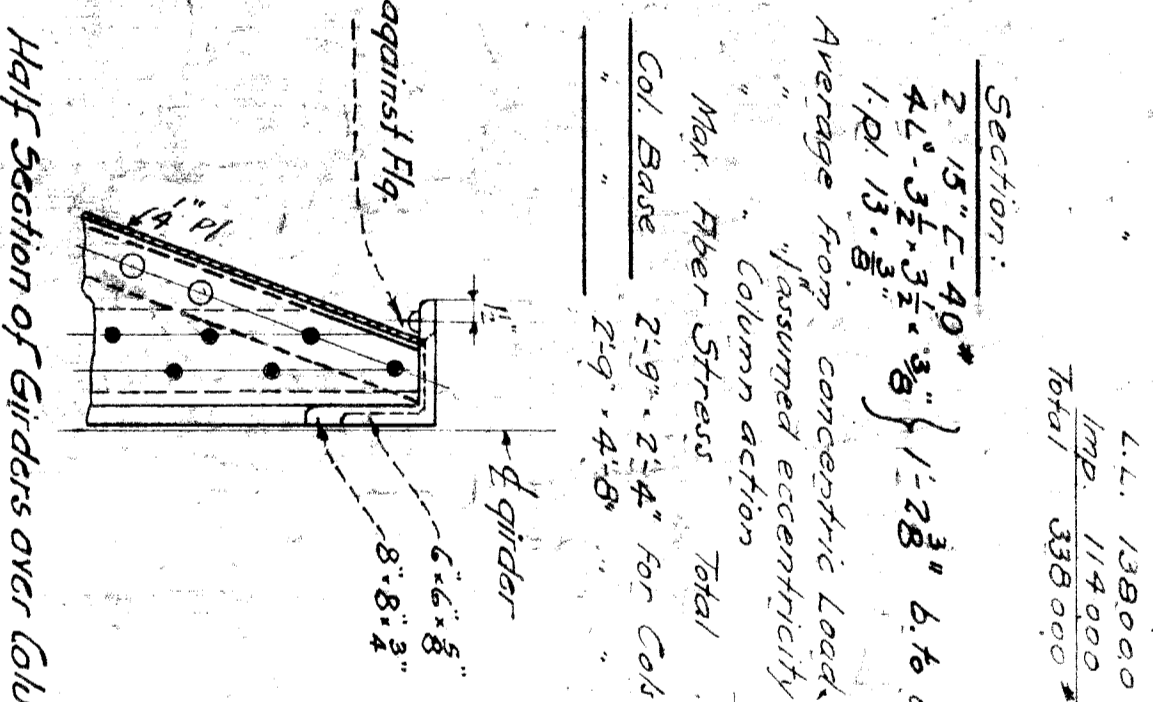 "
L.L. 138000
Imp. 114000
Total 338000#
Section:
2 15" [-40#
4 Ls - 3 1/2 × 3 1/2 × 3/8"
1-pl. 13 × 3/8"
} 1'-2 3/8" b. to
Average from concentric Load
" " 1" assumed eccentricity
" " Column action
Max. Fiber Stress Total
Col. Base 2'-9" × 2'-4" for Cols
" " 2'-9" × 4'-8" " "
against Flg.
1/4" pl.
1 1/2"
℄ girder
6" × 6" × 5/8"
8" × 8" × 3/4"
Half Section of Girders over